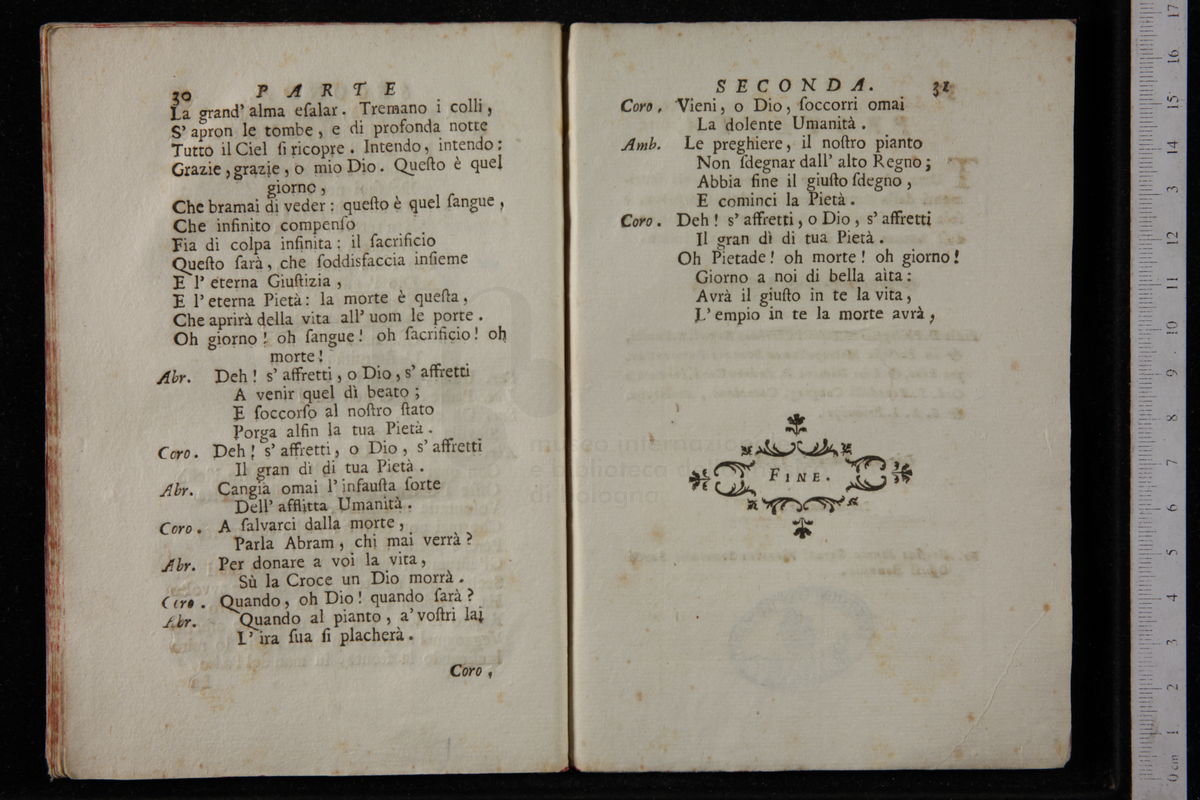 30 PARTE
La grand' alma eſalar. Tremano i colli,
S' apron le tombe, e di profonda notte
Tutto il Ciel ſi ricopre. Intendo, intendo:
Grazie, grazie, o mio Dio. Queſto è quel
giorno,
Che bramai di veder: queſto è quel ſangue,
Che infinito compenſo
Fia di colpa infinita: il ſacrificio
Queſto ſarà, che ſoddisfaccia inſieme
E l' eterna Giuſtizia,
E l' eterna Pietà: la morte è queſta,
Che aprirà della vita all' uom le porte.
Oh giorno! oh ſangue! oh ſacrificio! oh
morte!
Abr. Deh! s' affretti, o Dio, s' affretti
A venir quel dì beato;
E ſoccorſo al noſtro ſtato
Porga alfin la tua Pietà.
Coro. Deh! s' affretti, o Dio, s' affretti
Il gran dì di tua Pietà.
Abr. Cangia omai l' infauſta ſorte
Dell' afflitta Umanità.
Coro. A ſalvarci dalla morte,
Parla Abram, chi mai verrà?
Abr. Per donare a voi la vita,
Sù la Croce un Dio morrà.
Coro. Quando, oh Dio! quando ſarà?
Abr. Quando al pianto, a' voſtri lai
L' ira ſua ſi placherà.
Coro,
SECONDA. 31
Coro. Vieni, o Dio, ſoccorri omai
La dolente Umanità.
Amb. Le preghiere, il noſtro pianto
Non ſdegnar dall' alto Regno;
Abbia fine il giuſto ſdegno,
E cominci la Pietà.
Coro. Deh! s' affretti, o Dio, s' affretti
Il gran dì di tua Pietà.
Oh Pietade! oh morte! oh giorno!
Giorno a noi di bella aita:
Avrà il giuſto in te la vita,
L' empio in te la morte avrà,
FINE.
museo internazionale
e biblioteca della
di bologna
0 cm 1 2 3 4 5 6 7 8 9 10 11 12 13 14 15 16 17